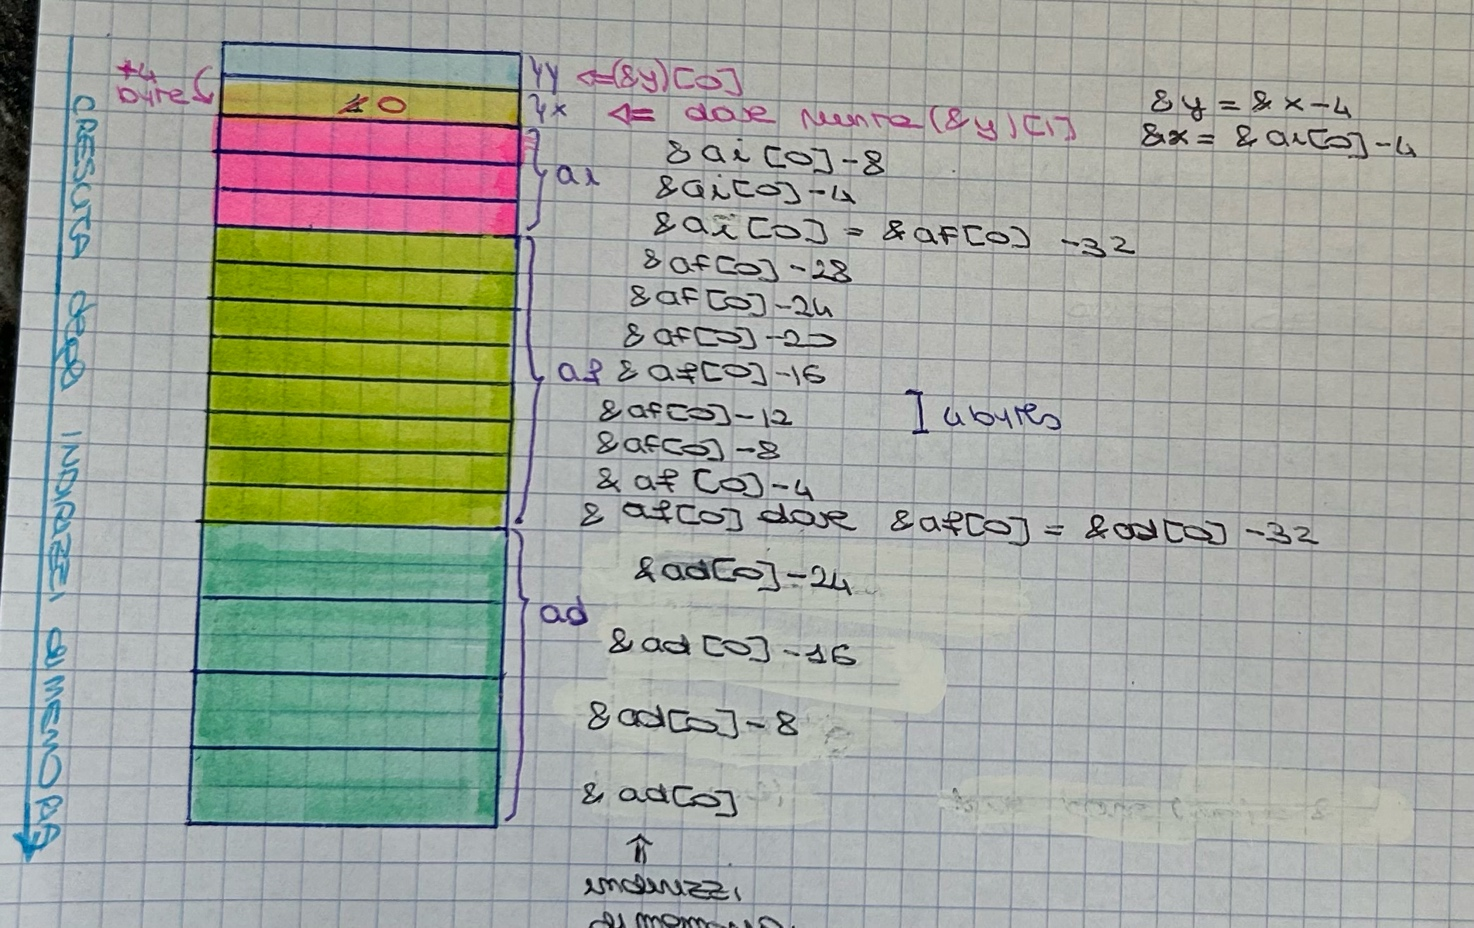 CRESCITA degli INDIRIZZI di MEMORIA
+4
byte
10
}y <=(&y)[0]
}x <= dove punta (&y)[1]
&y = &x-4
&x = &ai[0]-4
ai
&ai[0]-8
&ai[0]-4
&ai[0] = &af[0] -32
&af[0]-28
&af[0]-24
&af[0]-20
af &af[0]-16
&af[0]-12
&af[0]-8
&af[0]-4
&af[0] dove &af[0] = &ad[0] -32
I 4 bytes
ad
&ad[0]-24
&ad[0]-16
&ad[0]-8
&ad[0]
⇑
indirizzi
di memoria